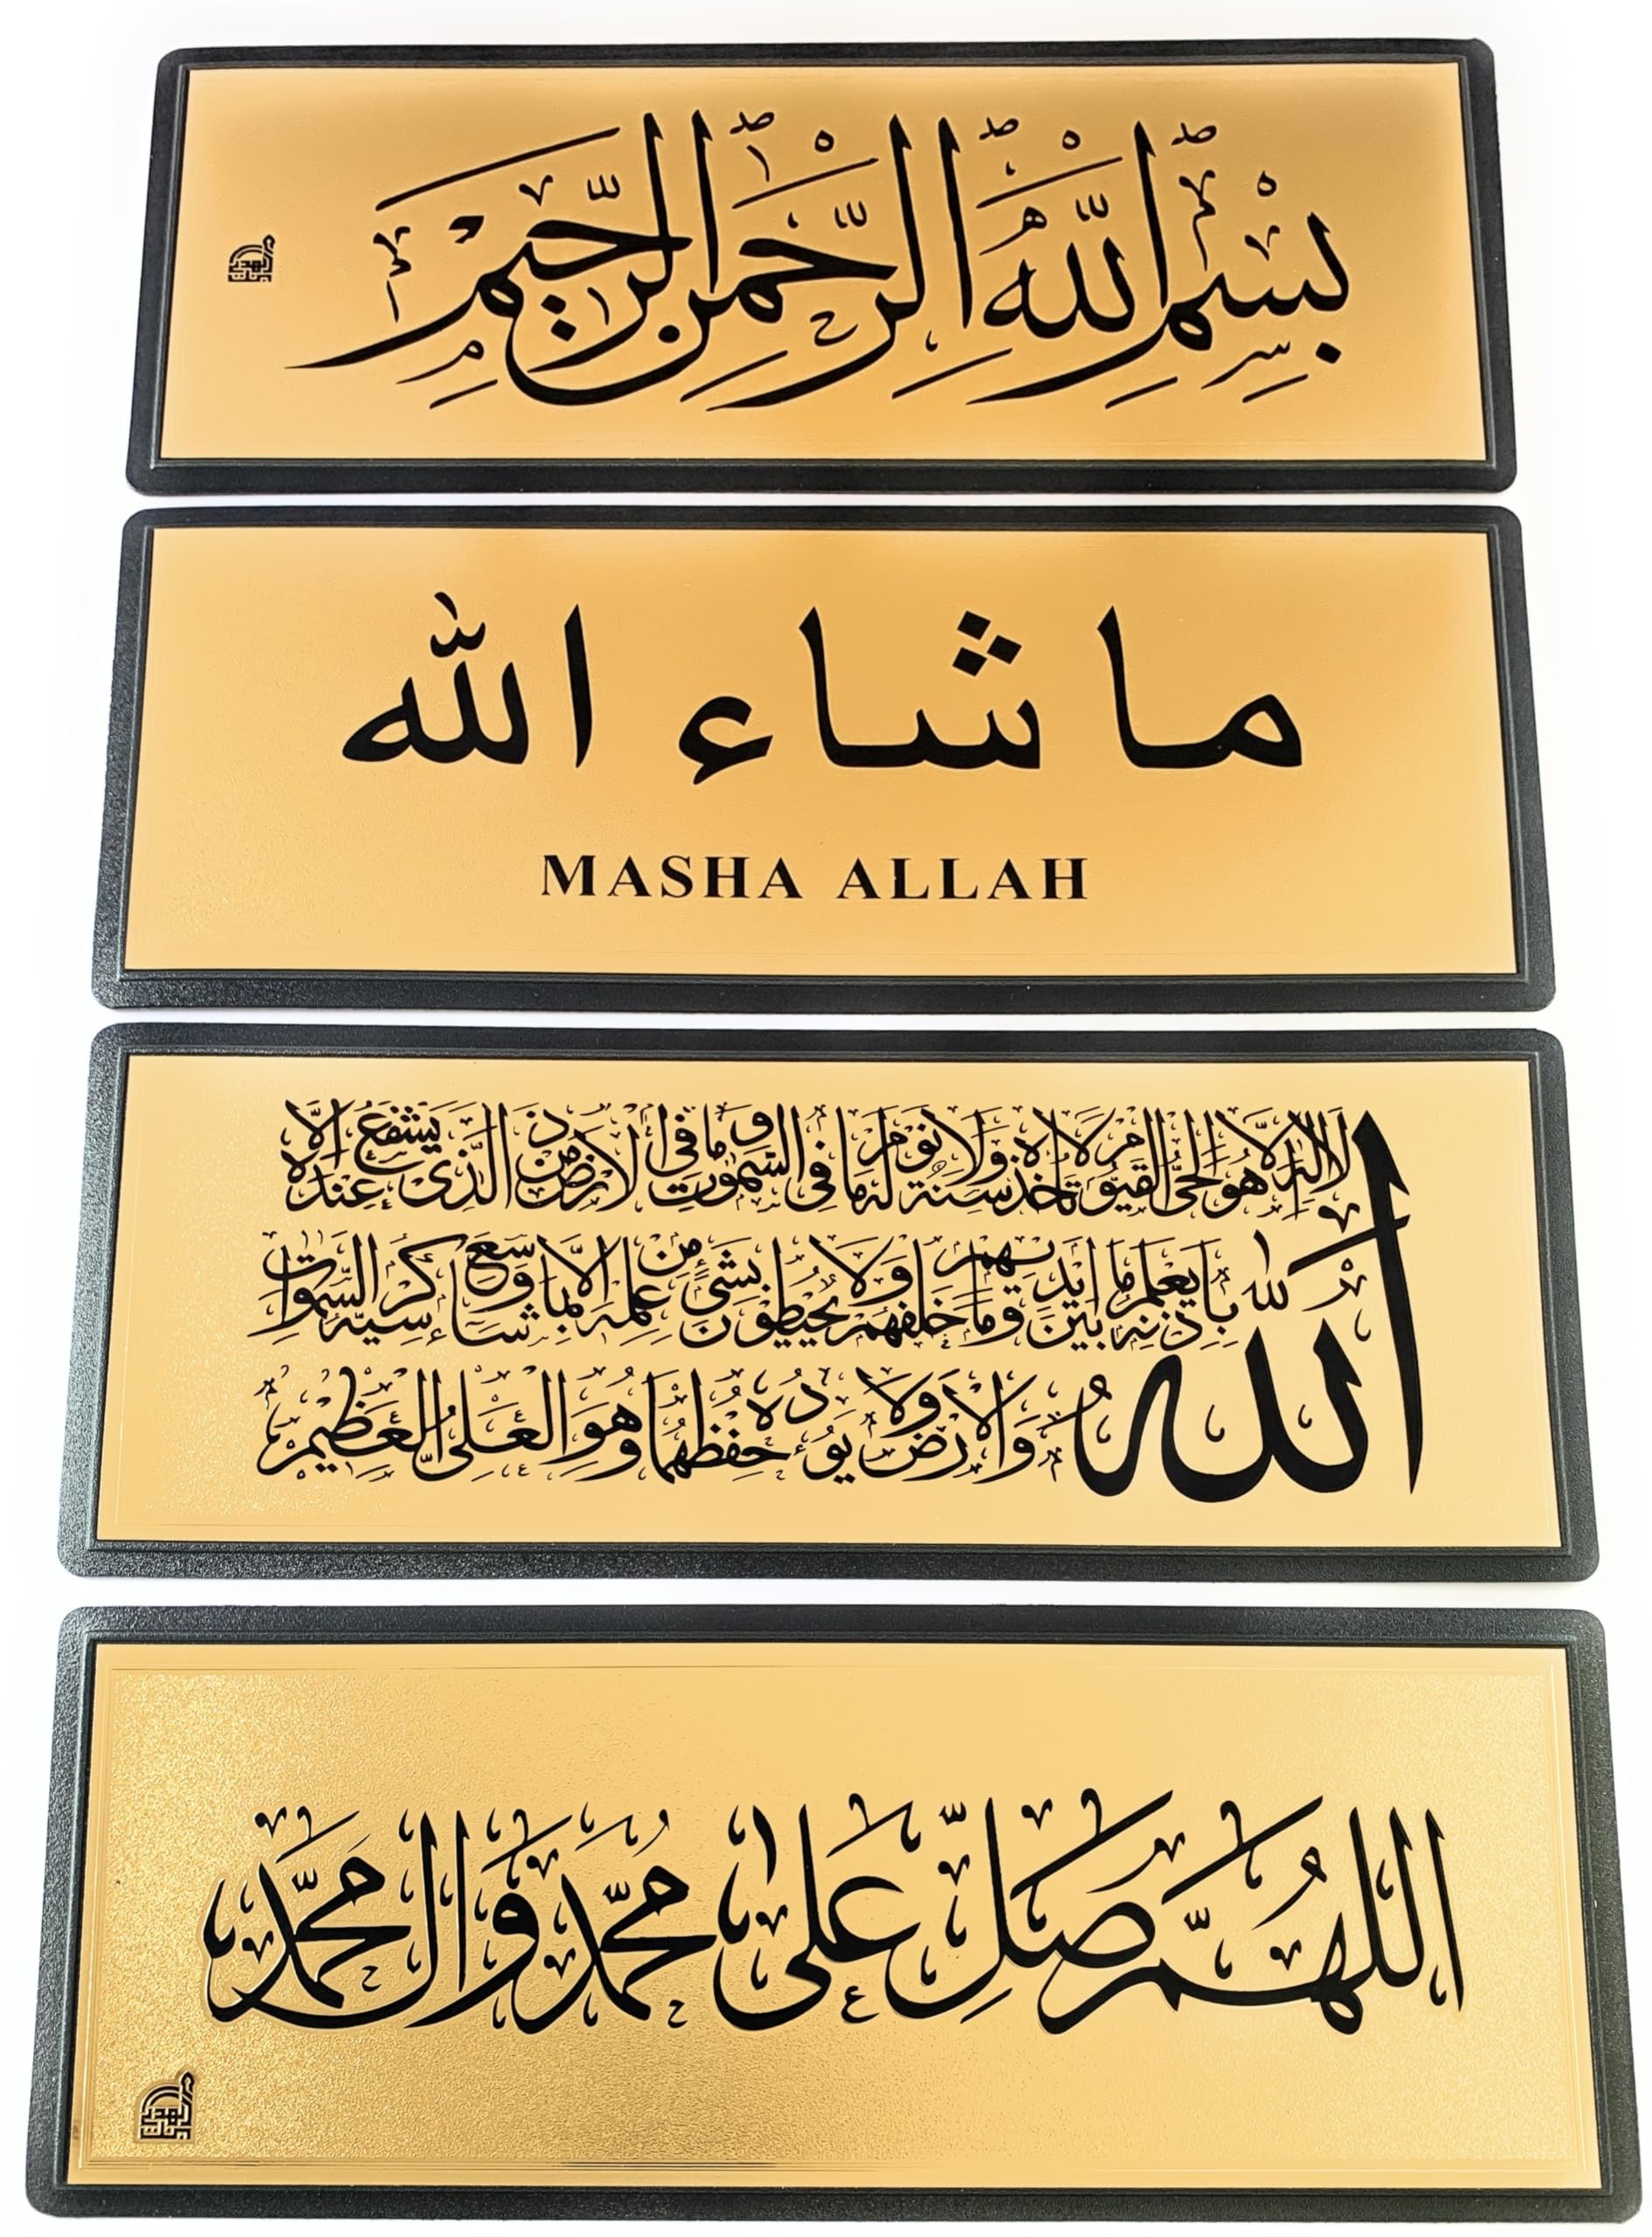 بِسْمِ اللّٰهِ الرَّحْمٰنِ الرَّحِيْمِ
ما شاء الله
MASHA ALLAH
اللّٰهُ لَا اِلٰهَ اِلَّا هُوَ الْحَيُّ الْقَيُّوْمُ لَا تَأْخُذُهُ سِنَةٌ وَلَا نَوْمٌ لَهُ مَا فِى السَّمٰوٰتِ وَمَا فِى الْاَرْضِ مَنْ ذَا الَّذِى يَشْفَعُ عِنْدَهُ اِلَّا
بِاِذْنِهِ يَعْلَمُ مَا بَيْنَ اَيْدِيْهِمْ وَمَا خَلْفَهُمْ وَلَا يُحِيْطُوْنَ بِشَىْءٍ مِنْ عِلْمِهِ اِلَّا بِمَا شَاءَ وَسِعَ كُرْسِيُّهُ السَّمٰوٰتِ
وَالْاَرْضَ وَلَا يَؤُدُهُ حِفْظُهُمَا وَهُوَ الْعَلِىُّ الْعَظِيْمُ
اللّهُمَّ صَلِّ عَلىٰ مُحَمَّدٍ وَالِ مُحَمَّدٍ